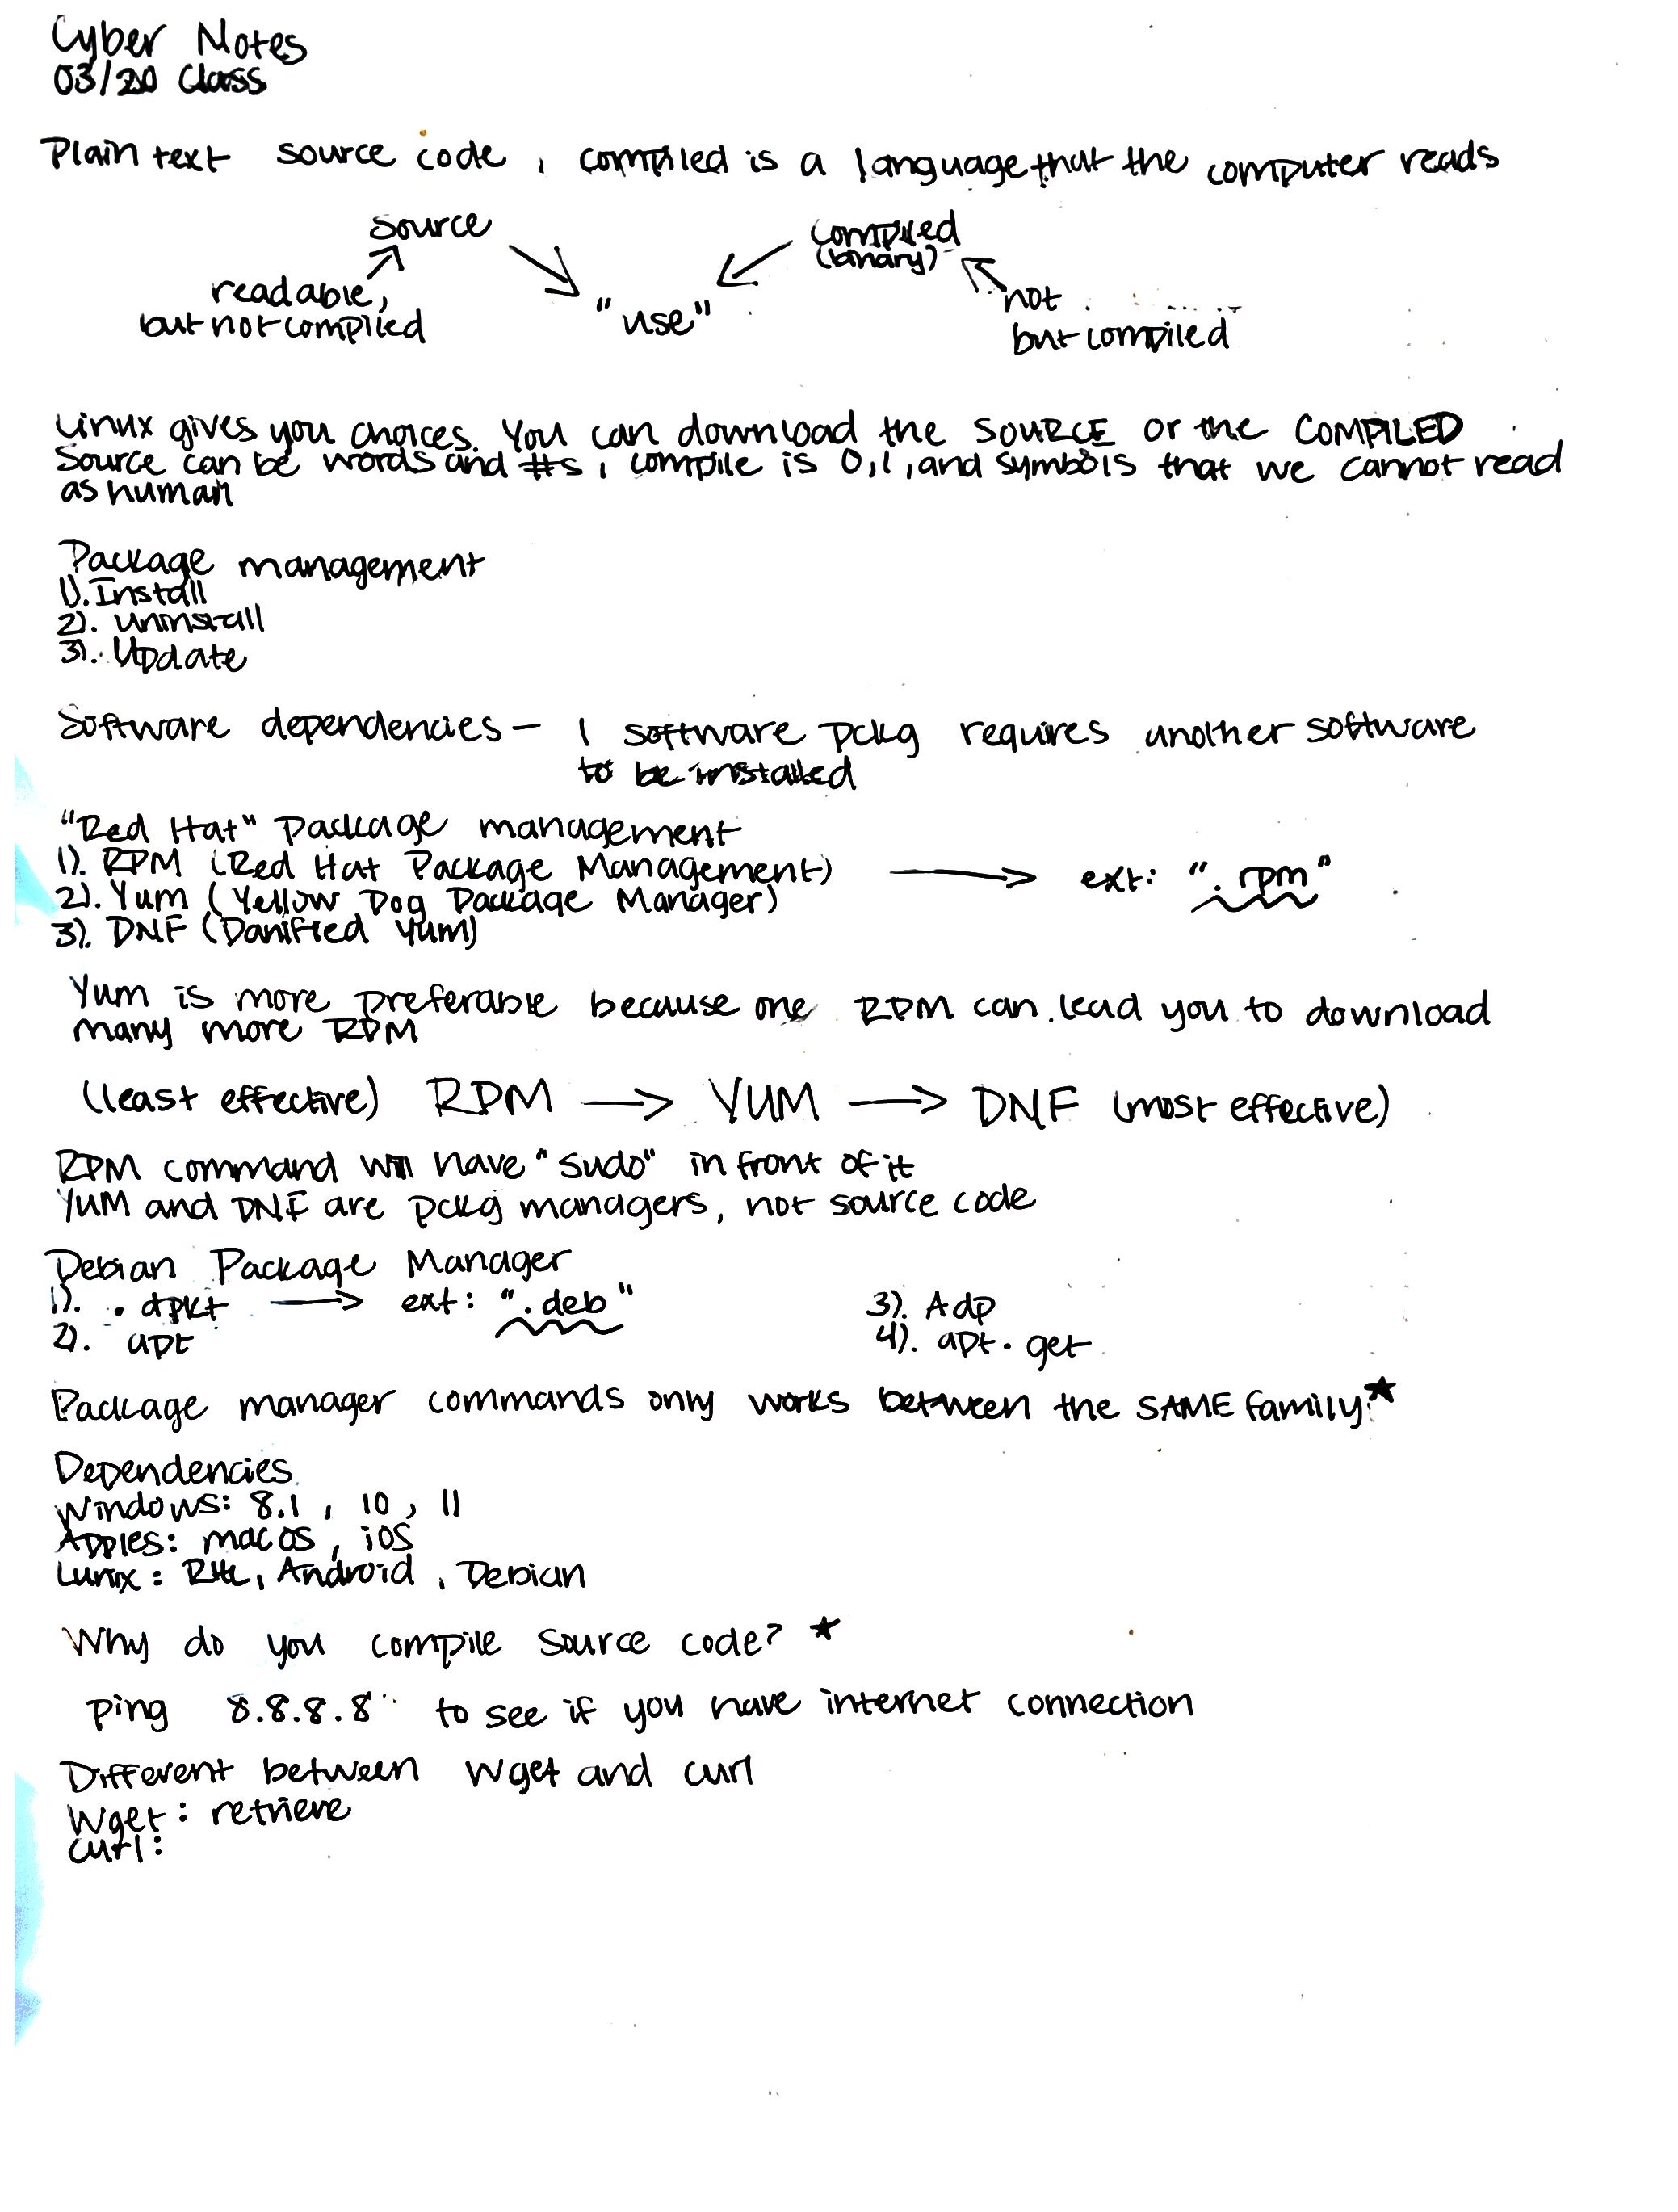 Cyber Notes
03/20 Class
Plain text source code, compiled is a language that the computer reads
source
compiled
(binary)
readable,
but not compiled
"use"
not
but compiled
Linux gives you choices. You can download the SOURCE or the COMPILED
Source can be words and #s, compile is 0,1, and symbols that we cannot read
as human
Package management
1). Install
2). Uninstall
3). Update
Software dependencies - 1 software pckg requires another software
to be installed
"Red Hat" package management
1). RPM (Red Hat Package Management) → ext: ".rpm"
2). Yum (Yellow Dog Package Manager)
3). DNF (Danified Yum)
Yum is more preferable because one RPM can lead you to download
many more RPM
(least effective) RPM → YUM → DNF (most effective)
RPM command will have "sudo" in front of it
YUM and DNF are pckg managers, not source code
Debian Package Manager
1). . dpkt → ext: ".deb"
2). apt
3). Adp
4). apt. get
Package manager commands only works between the SAME family★
Dependencies
Windows: 8.1, 10, 11
Apples: macos, iOS
Lunix: RHL, Android, Debian
Why do you compile source code? ★
Ping 8.8.8.8 to see if you have internet connection
Different between Wget and curl
Wget: retrieve
Curl: